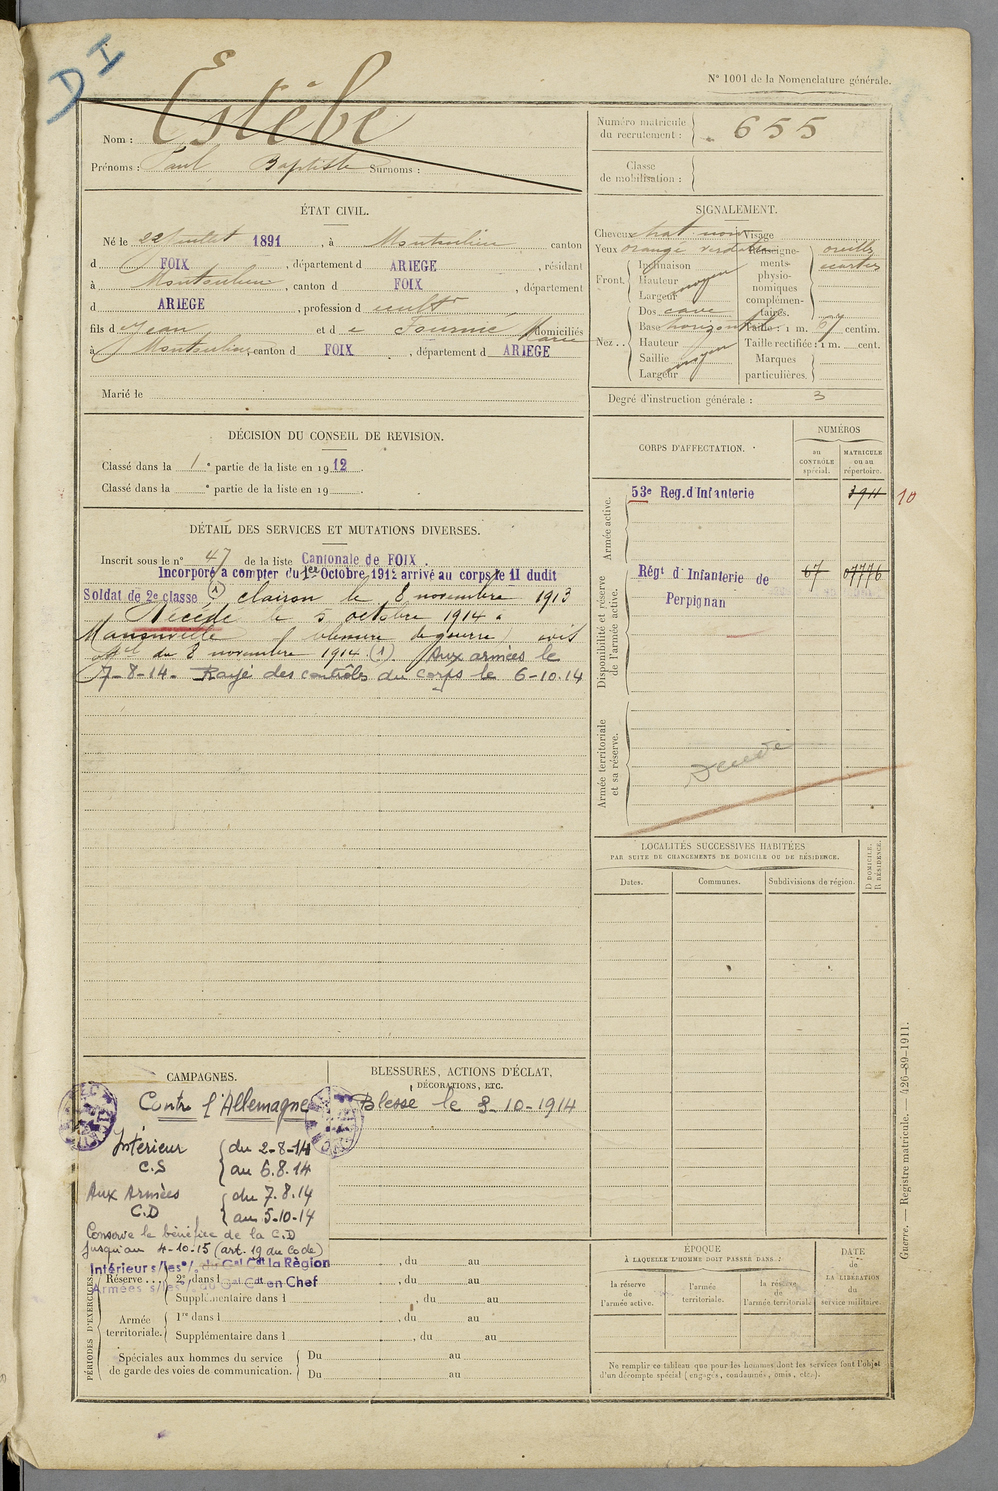 D I
N° 1001 de la Nomenclature générale.
Nom : Estèbe
Prénoms : Paul Baptiste Surnoms :
Numéro matricule du recrutement : 655
Classe de mobilisation :
ÉTAT CIVIL.
Né le 22 Juillet 1891, à Montoulieu canton
d FOIX, département d ARIEGE, résidant
à Montoulieu, canton d FOIX, département
d ARIEGE, profession de cultr
fils de Jean et d e Fournié Marie domiciliés
à Montoulieu, canton d FOIX, département d ARIEGE
Marié le
SIGNALEMENT.
Cheveux chat noir Visage
Yeux orangé verdâtre Renseignements physionomiques complémentaires. oreilles écartées
Front. Inclinaison
Hauteur moyen
Largeur
Nez.. Dos cave
Base horizontale Taille : 1 m. 67 centim.
Hauteur Taille rectifiée : 1 m. cent.
Saillie moyen Marques
Largeur particulières.
Degré d'instruction générale : 3
DÉCISION DU CONSEIL DE REVISION.
Classé dans la 1e partie de la liste en 1912.
Classé dans la e partie de la liste en 19 .
DÉTAIL DES SERVICES ET MUTATIONS DIVERSES.
Inscrit sous le n° 47 de la liste Cantonale de FOIX.
Incorporé à compter du 1er Octobre 1912 arrivé au corps le 11 dudit
Soldat de 2e classe (1) clairon le 8 novembre 1913
Décédé le 5 octobre 1914 à
(blessure de guerre) avis
du 3 novembre 1914. (1) Aux armées le
7-8-14. Rayé des contrôles du corps le 6-10.14
CORPS D'AFFECTATION.
NUMÉROS
au CONTRÔLE spécial.
MATRICULE ou au répertoire.
Armée active.
53e Reg. d'Infanterie 3911 10
Disponibilité et réserve de l'armée active.
Régt d'Infanterie de 67 07776
Perpignan
Armée territoriale et sa réserve.
LOCALITÉS SUCCESSIVES HABITÉES
PAR SUITE DE CHANGEMENTS DE DOMICILE OU DE RÉSIDENCE.
Dates.
Communes.
Subdivisions de région.
D DOMICILE. R RÉSIDENCE.
CAMPAGNES.
Contre l'Allemagne
Intérieur C.S du 2-8-14 au 6.8.14
Aux Armées C.D du 7.8.14 au 5-10-14
Conserve le bénéfice de la C.D
jusqu'au 4-10-15 (art. 19 du Code)
Intérieur s/les °/. du Gal Cdt la Région
Armées s/les °/. du Gal Cdt en Chef
BLESSURES, ACTIONS D'ÉCLAT,
DÉCORATIONS, ETC.
Blessé le 3-10-1914
PÉRIODES D'EXERCICES.
, du au
Réserve... 2e dans l , du au
Supplémentaire dans l , du au
Armée territoriale. 1re dans l , du au
Supplémentaire dans l , du au
Spéciales aux hommes du service de garde des voies de communication. Du au
Du au
ÉPOQUE
À LAQUELLE L'HOMME DOIT PASSER DANS :
la réserve de l'armée active.
l'armée territoriale.
la réserve de l'armée territoriale
DATE de LA LIBÉRATION du service militaire.
Ne remplir ce tableau que pour les hommes dont les services font l'objet
d'un décompte spécial (engagés, condamnés, omis, etc.).
Guerre. — Registre matricule. — 426-89-1911.